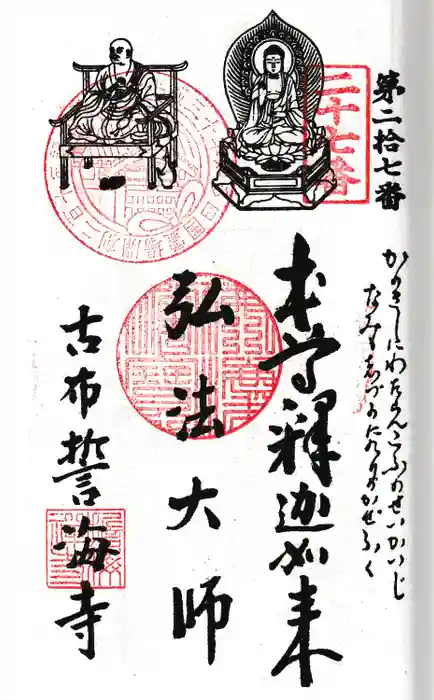 第二拾七番
二十七番
かのきしにわたさんこふのせいかいじ
なみもしづかにのりのかぜふく
本尊釋迦如来
弘法大師
古布誓海寺